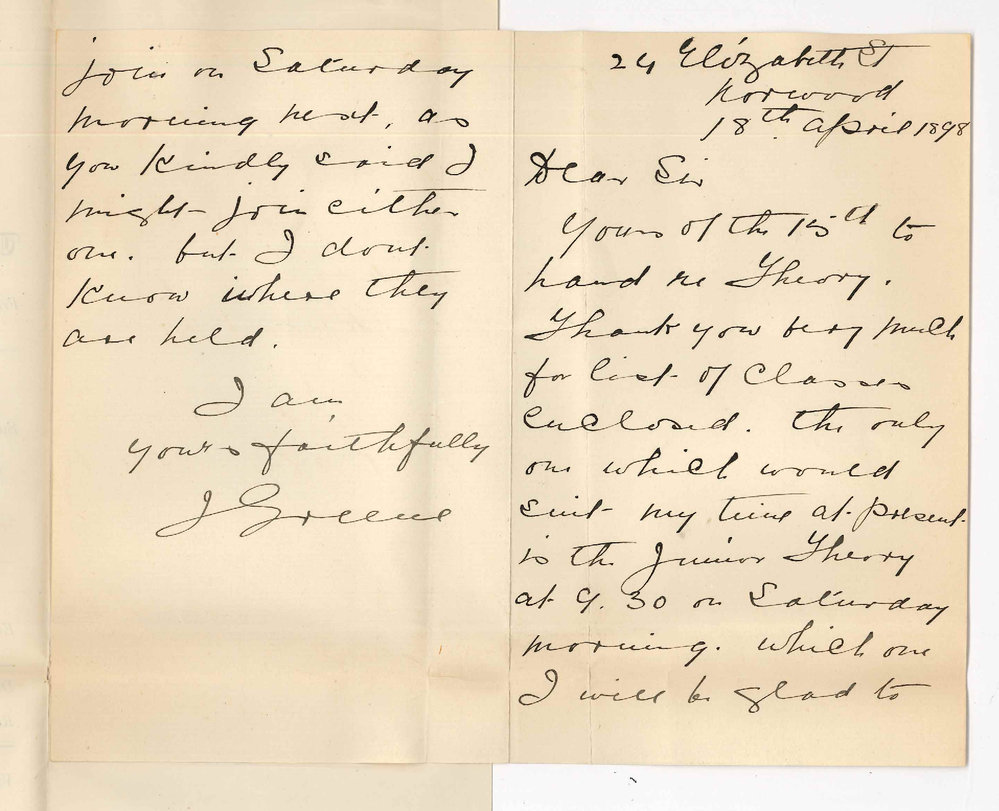 24 Elizabeth St
Norwood
18th April 1898
Dear Sir
Yours of the 15th to
hand re Theory.
Thank you very much
for list of Classes
enclosed. The only
one which would
suit my time at present
is the Junior Theory
at 9.30 on Saturday
morning. which one
I will be glad to
join on Saturday
morning next, as
you kindly said I
might join either
one. but I dont
know where they
are held.
I am
yours faithfully
J Greene